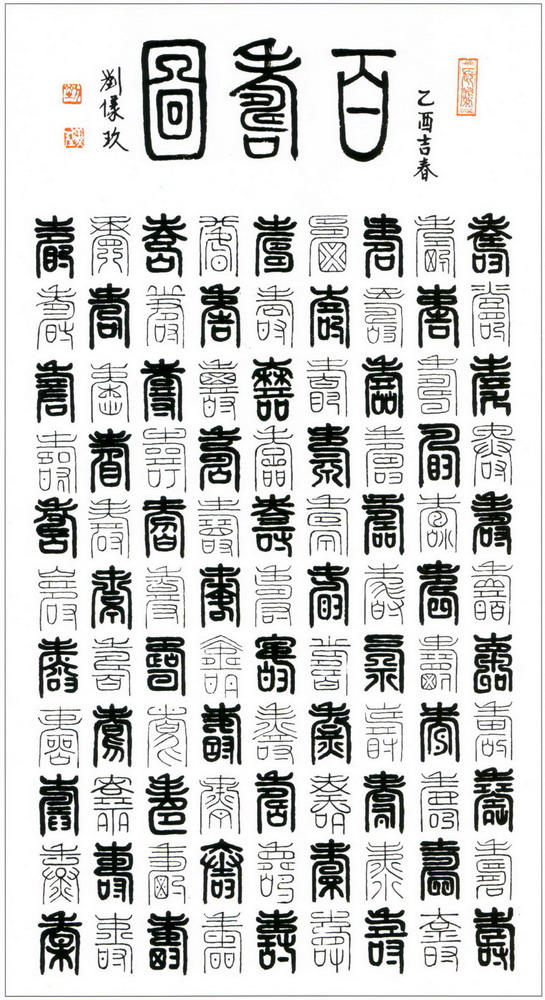 百壽圖
乙酉吉春
劉玖
壽壽壽壽壽壽壽壽壽壽壽
壽壽壽壽壽壽壽壽壽壽壽
壽壽壽壽壽壽壽壽壽壽壽
壽壽壽壽壽壽壽壽壽壽壽
壽壽壽壽壽壽壽壽壽壽壽
壽壽壽壽壽壽壽壽壽壽壽
壽壽壽壽壽壽壽壽壽壽壽
壽壽壽壽壽壽壽壽壽壽壽
壽壽壽壽壽壽壽壽壽壽壽